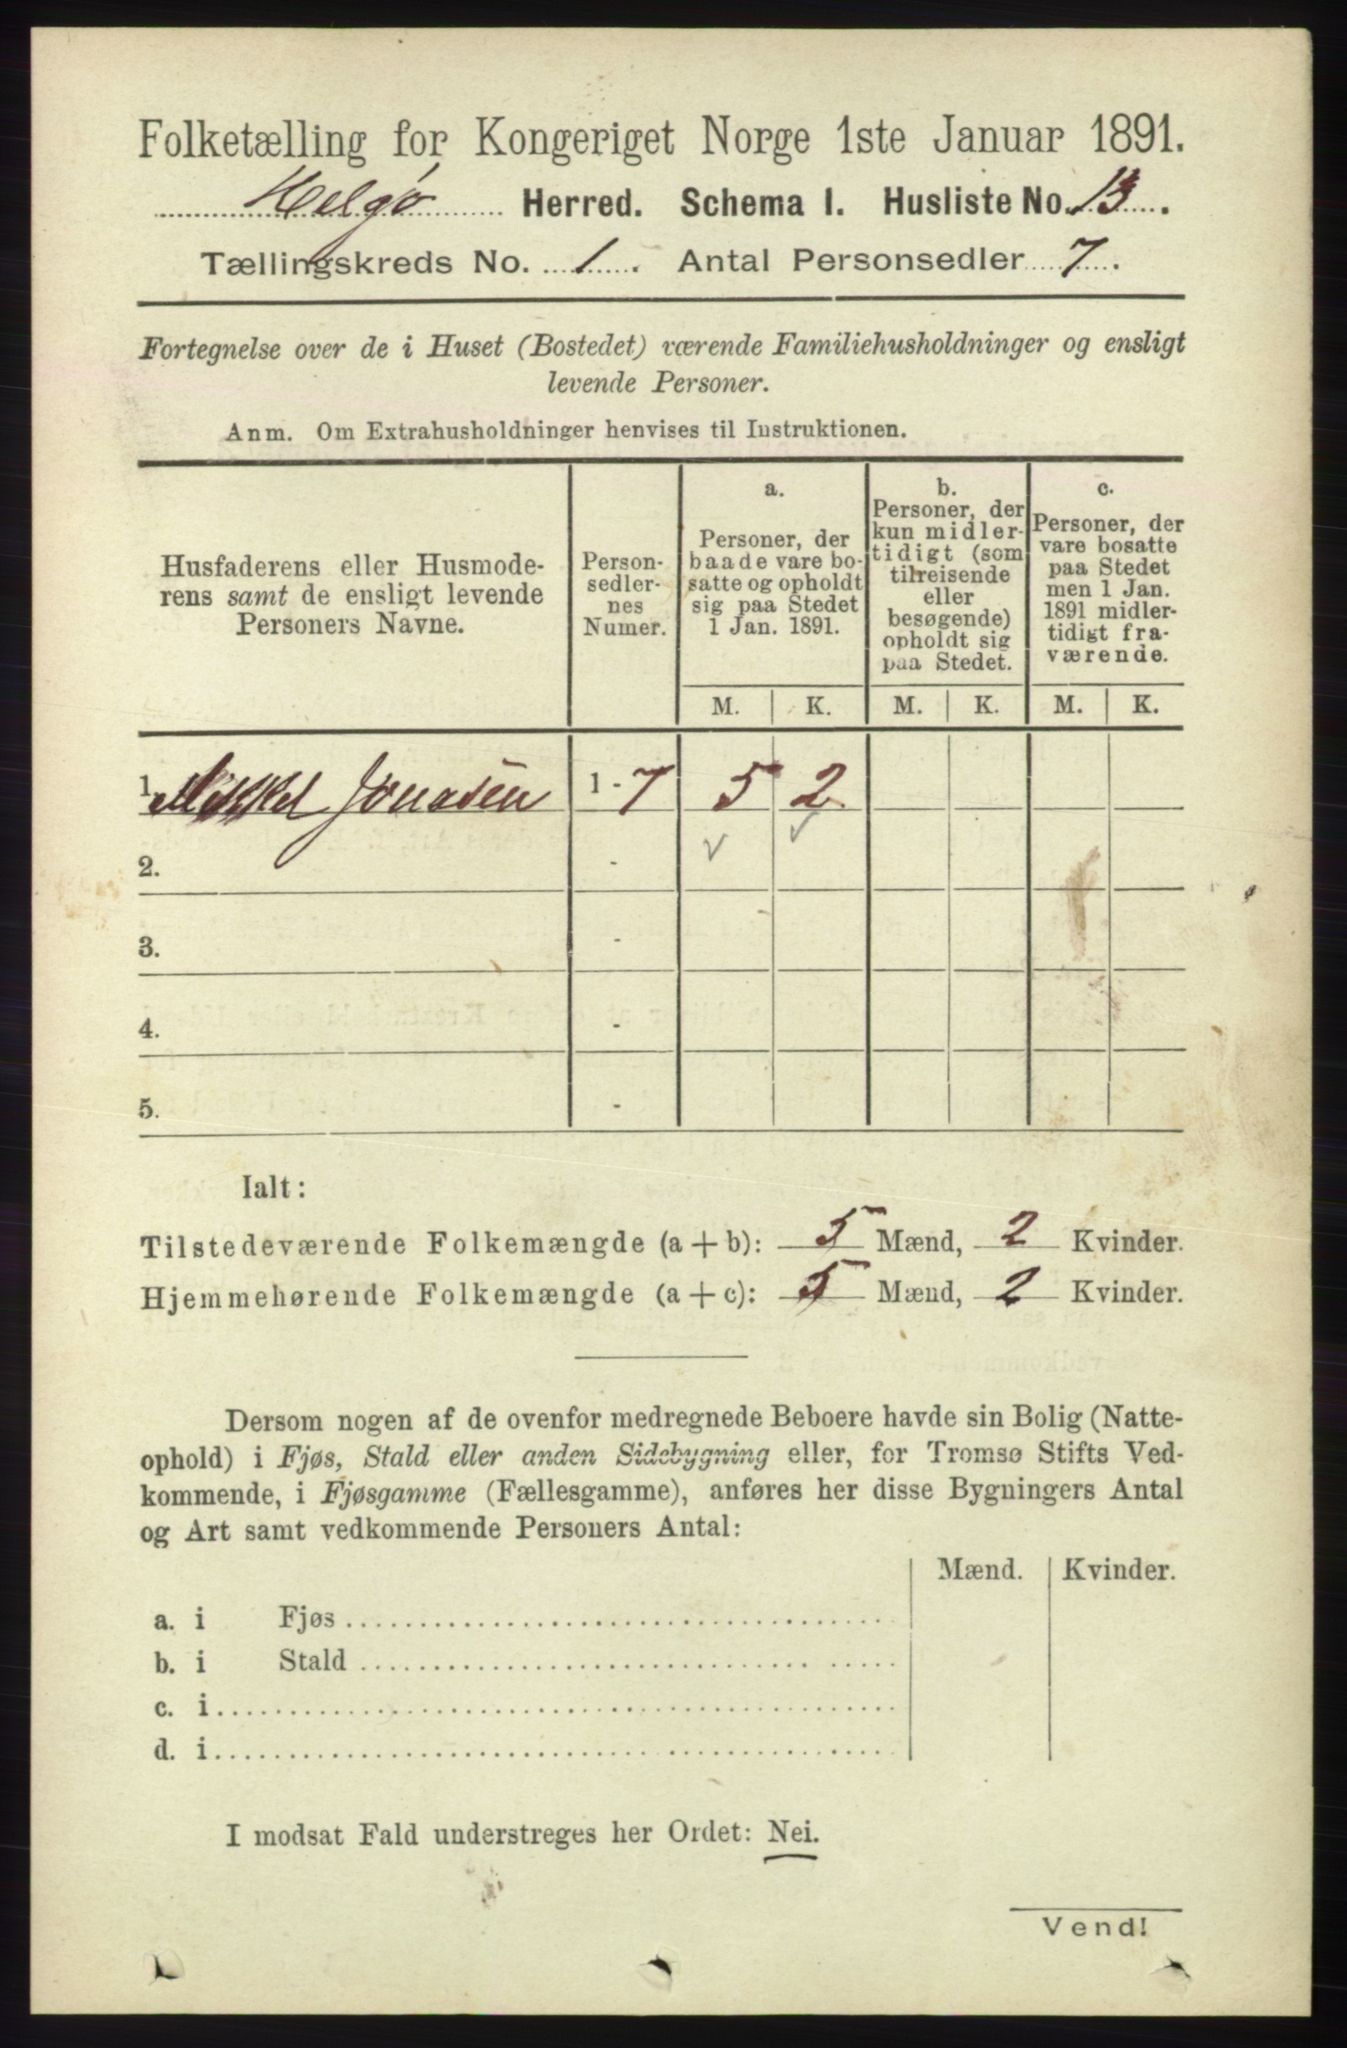 Folketælling for Kongeriget Norge 1ste Januar 1891.
Helgø Herred. Schema I. Husliste No. 13.
Tællingskreds No. 1. Antal Personsedler 7.
Fortegnelse over de i Huset (Bostedet) værende Familiehusholdninger og ensligt
levende Personer.
Anm. Om Extrahusholdninger henvises til Instruktionen.
Husfaderens eller Husmode-
rens samt de ensligt levende
Personers Navne.
Person-
sedler-
nes
Numer.
a.
Personer, der
baade vare bo-
satte og opholdt
sig paa Stedet
1 Jan. 1891.
b.
Personer, der
kun midler-
tidigt (som
tilreisende
eller
besøgende)
opholdt sig
paa Stedet.
c.
Personer, der
vare bosatte
paa Stedet
men 1 Jan.
1891 midler-
tidigt fra-
værende.
M. K. M. K. M. K.
1. Mikkel Jonasen 1 - 7 5 2
2. -
3. -
4. -
5. -
Ialt:
Tilstedeværende Folkemængde (a + b): 5 Mænd, 2 Kvinder.
Hjemmehørende Folkemængde (a + c): 5 Mænd, 2 Kvinder.
Dersom nogen af de ovenfor medregnede Beboere havde sin Bolig (Natte-
ophold) i Fjøs, Stald eller anden Sidebygning eller, for Tromsø Stifts Ved-
kommende, i Fjøsgamme (Fællesgamme), anføres her disse Bygningers Antal
og Art samt vedkommende Personers Antal:
Mænd. Kvinder.
a. i Fjøs
b. i Stald
c. i
d. i
I modsat Fald understreges her Ordet: Nei.
Vend!